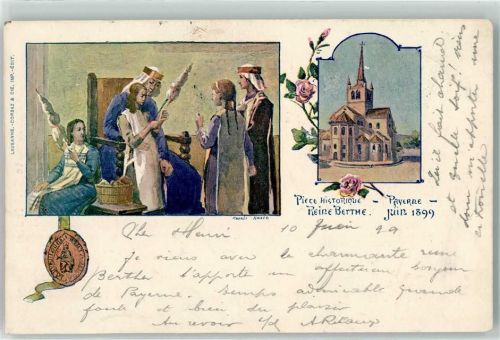 LAUSANNE.-CORBAZ & CIE, IMP.-ÉDIT.
PIÈCE HISTORIQUE - PAYERNE -
REINE BERTHE. - JUIN 1899
Cher Henri 10 Juin 99
je viens avec la charmante reine
Berthe t'apporter un affectueux bonjour
de Payerne. Temps admirable grande
foule et bien du plaisir
Au revoir
Qu'il fait chaud
et quelle soif! viens
donc m'apporter une